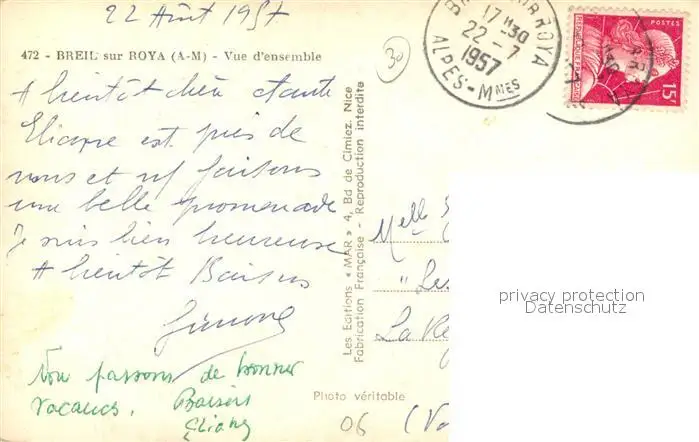 22 Août 1957
472 - BREIL sur ROYA (A-M) - Vue d'ensemble
A bientôt chère tante
Eliane est près de
nous et ns faisons
une belle promenade
Je suis bien heureuse
A bientôt Baisers
Simone
Nous passons de bonnes
vacances. Baisers
Eliane
Les Editions « MAR » 4, Bd de Cimiez. Nice
Fabrication Française - Reproduction interdite
Photo véritable
30
06
ROYA
17H30
22-7
1957
ALPES-Mmes
POSTES
15F
Melle
" Les
La
(Va
privacy protection
Datenschutz